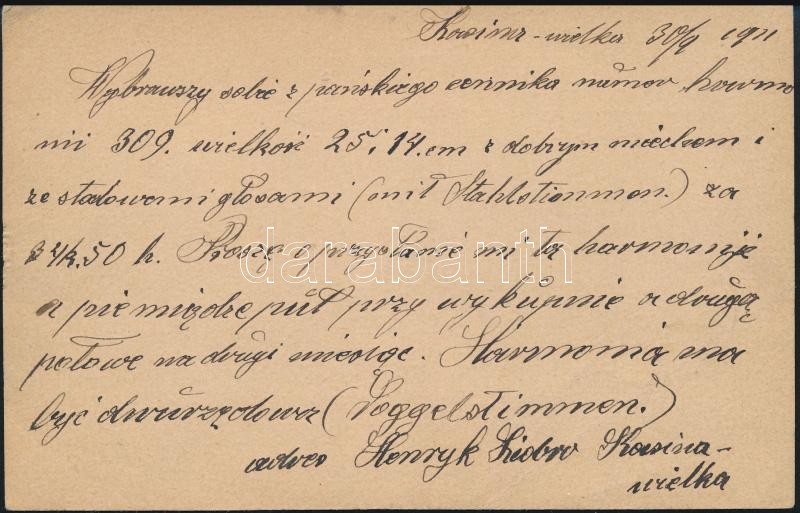 Kasina-wielka 30/9 1911
Wybrawszy sobie z pańskiego cennika numer harmo
nii 309. wielkość 25 i 14.cm z dobrym miechem i
ze stalowemi głosami (mit Stahlstimmen.) za
50 h. Proszę o przysłanie mi tą harmonije
a pieniądze puł przy wykupnie a drugą
połowe na drugi miesiąc. Harmonia ma
być dwurzędowa (Doggelstimmen.)
adres Henryk Kasina-
wielka
darabanth